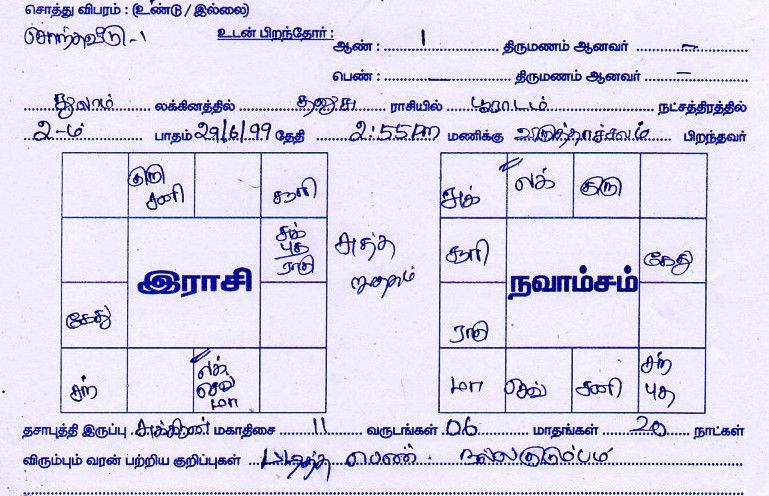 சொத்து விபரம் : (உண்டு / இல்லை)
சொந்தவீடு - 1
உடன் பிறந்தோர் : ஆண் : 1 திருமணம் ஆனவர் –
பெண் : – திருமணம் ஆனவர் –
துலாம் லக்கினத்தில் தனுசு ராசியில் பூராடம் நட்சத்திரத்தில்
2-ம் பாதம் 29/6/99 தேதி 2:55 PM மணிக்கு விருத்தாச்சலம் பிறந்தவர்
குரு சனி சூரி
சுக் புத ராகு
இராசி
கேது
சந் லக் செவ் மா
சுத்த ஜாதகம்
சுக் லக் குரு
சூரி கேது
நவாம்சம்
ராகு
மா செவ் சனி சந் புத
தசாபுத்தி இருப்பு சுக்கிரன் மகாதிசை 11 வருடங்கள் 06 மாதங்கள் 20 நாட்கள்
விரும்பும் வரன் பற்றிய குறிப்புகள் படித்த பெண் . நல்லகுடும்பம்